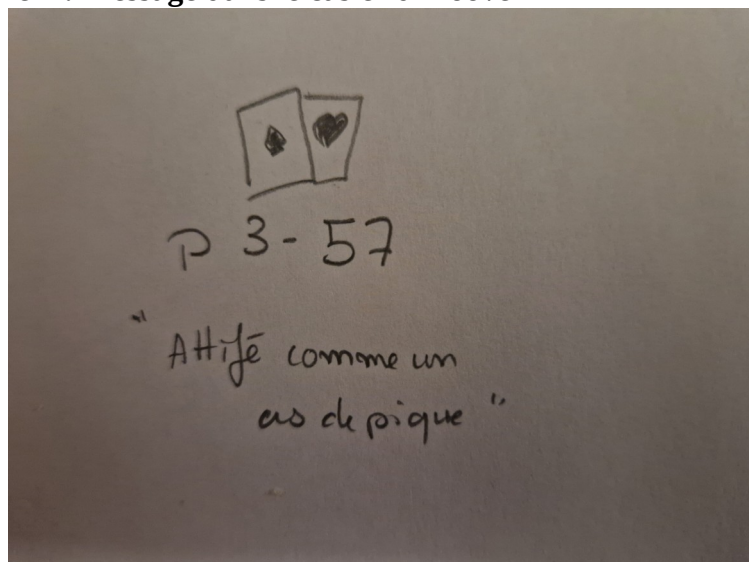 P 3-57
"Attifé comme un
as de pique"